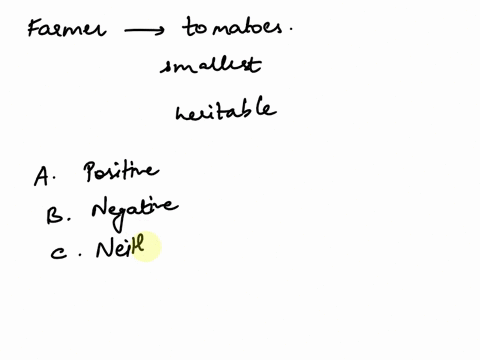 Farmer → tomatoes.
smallest
heritable
A. Positive
B. Negative
C. Neith